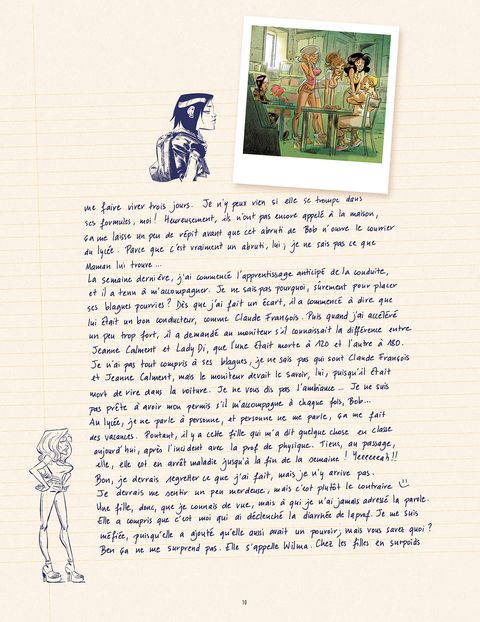 me faire virer trois jours. Je n'y peux rien si elle se trompe dans
ses formules, moi ! Heureusement, ils n'ont pas encore appelé à la maison,
ça me laisse un peu de répit avant que cet abruti de Bob n'ouvre le courrier
du lycée. Parce que c'est vraiment un abruti, lui ; je ne sais pas ce que
Maman lui trouve ...
La semaine dernière, j'ai commencé l'apprentissage anticipé de la conduite,
et il a tenu à m'accompagner. Je ne sais pas pourquoi, sûrement pour placer
ses blagues pourries ? Dès que j'ai fait un écart, il a commencé à dire que
lui était un bon conducteur, comme Claude François. Puis quand j'ai accéléré
un peu trop fort, il a demandé au moniteur s'il connaissait la différence entre
Jeanne Calment et Lady Di, que l'une était morte à 120 et l'autre à 180.
Je n'ai pas tout compris à ses blagues, je ne sais pas qui sont Claude François
et Jeanne Calment, mais le moniteur devait le savoir, lui, puisqu'il était
mort de rire dans la voiture. Je ne vous dis pas l'ambiance ... Je ne suis
pas prête à avoir mon permis s'il m'accompagne à chaque fois, Bob...
Au lycée, je ne parle à personne, et personne ne me parle, ça me fait
des vacances. Pourtant, il y a cette fille qui m'a dit quelque chose en classe
aujourd'hui, après l'incident avec la prof de physique. Tiens, au passage,
elle, elle est en arrêt maladie jusqu'à la fin de la semaine ! Yeeeeeah !!
Bon, je devrais regretter ce que j'ai fait, mais je n'y arrive pas.
Je devrais me sentir un peu merdeuse, mais c'est plutôt le contraire
Une fille, donc, que je connais de vue, mais à qui je n'ai jamais adressé la parole.
Elle a compris que c'est moi qui ai déclenché la diarrhée de la prof. Je me suis
méfiée, puisqu'elle a ajouté qu'elle aussi avait un pouvoir ; mais vous savez quoi ?
Ben ça ne me surprend pas. Elle s'appelle Wilma. Chez les filles en surpoids
10